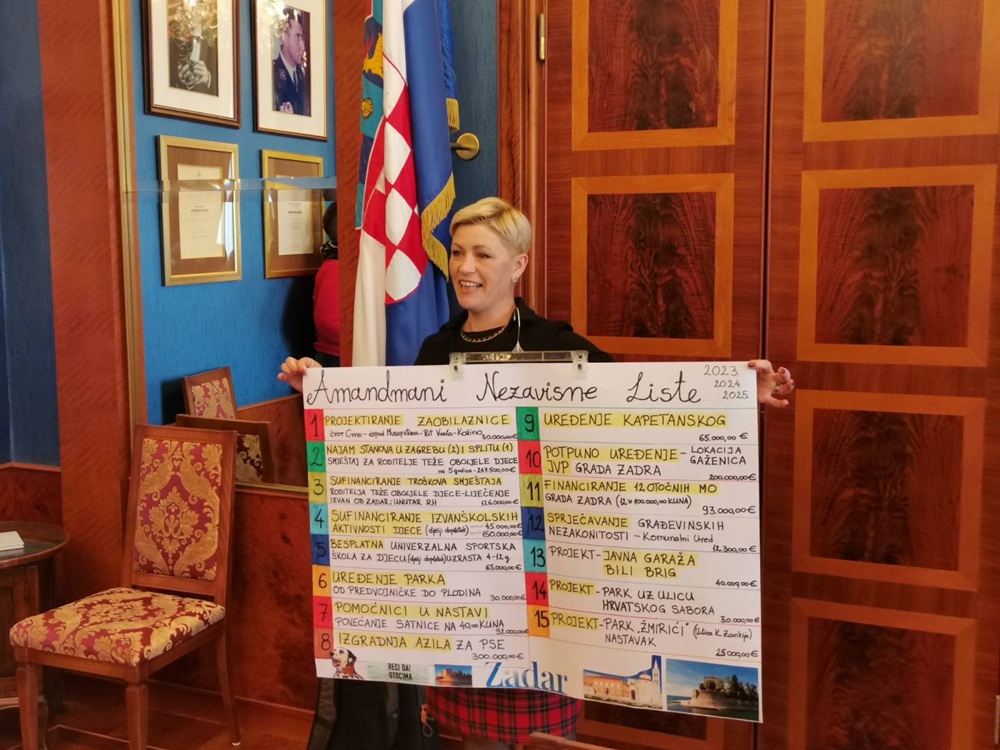 Amandmani Nezavisne Liste
2023.
2024.
2025.
1 PROJEKTIRANJE ZAOBILAZNICE
30.000,00€
2 NAJAM STANOVA U ZAGREBU (2) I SPLITU (1)
SMJEŠTAJ ZA RODITELJE TEŽE OBOLJELE DJECE
na 5 godina - 247.500,00€
3 SUFINANCIRANJE TROŠKOVA SMJEŠTAJA
RODITELJA TEŽE OBOLJELE DJECE-LIJEČENJE
IZVAN OB ZADAR; UNUTAR RH 126.000,00€
4 SUFINANCIRANJE IZVANŠKOLSKIH
AKTIVNOSTI DJECE (dječji doplatak) 45.000,00€
150.000,00€
5 BESPLATNA UNIVERZALNA SPORTSKA
ŠKOLA ZA DJECU (dječji doplatak) UZRASTA 4-12g.
65.000,00€
6 UREĐENJE PARKA
OD PREDVOJNIČKE DO PLODINA 30.000,00€
7 POMOĆNICI U NASTAVI
POVEĆANJE SATNICE NA 40,00 KUNA
92.000,00€
8 IZGRADNJA AZILA ZA PSE
300.000,00€
9 UREĐENJE KAPETANSKOG
65.000,00 €
10 POTPUNO UREĐENJE - LOKACIJA
JVP GRADA ZADRA GAŽENICA
200.000,00€
11 FINANCIRANJE 12 OTOČNIH MO
GRADA ZADRA (12x100.000,00 KUNA)
93.000,00€
12 SPRJEČAVANJE GRAĐEVINSKIH
NEZAKONITOSTI - Komunalni Ured
12.300,00€
13 PROJEKT - JAVNA GARAŽA
BILI BRIG
40.000,00€
14 PROJEKT - PARK UZ ULICU
HRVATSKOG SABORA
30.000,00€
15 PROJEKT - PARK "ŽMIRIĆI" (Ulica K. Zankija)
NASTAVAK
25.000,00€
RECI DA!
OTOCIMA
Zadar